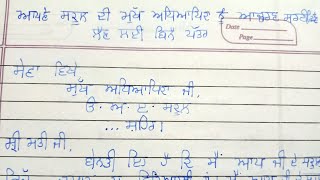 ਆਪਣੇ ਸਕੂਲ ਦੀ ਮੁੱਖ ਅਧਿਆਪਿਕਾ ਨੂੰ ਆਚਰਣ ਸਰਟੀਫਿਕੇਟ
ਲੈਣ ਲਈ ਬਿਨੈ ਪੱਤਰ
Date
Page
ਸੇਵਾ ਵਿਖੇ
ਮੁੱਖ ਅਧਿਆਪਿਕਾ ਜੀ,
ੳ. ਅ. ੲ. ਸਕੂਲ
... ਸ਼ਹਿਰ।
ਸ਼੍ਰੀ ਮਤੀ ਜੀ,
ਬੇਨਤੀ ਇਹ ਹੈ ਕਿ ਮੈਂ ਆਪ ਜੀ ਦੇ ਸਕੂਲ